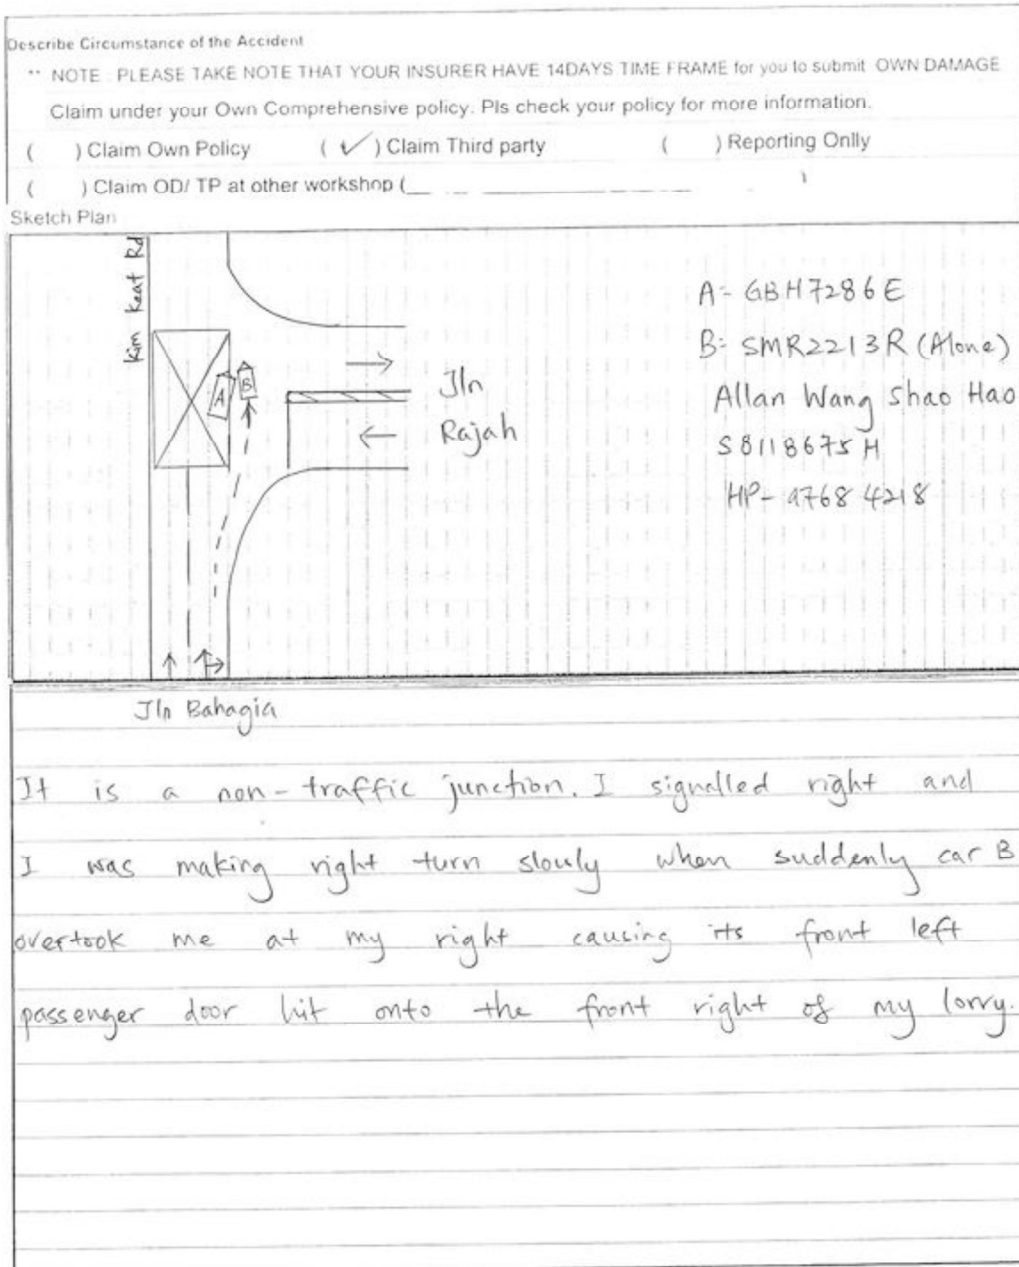 Describe Circumstance of the Accident
** NOTE : PLEASE TAKE NOTE THAT YOUR INSURER HAVE 14DAYS TIME FRAME for you to submit OWN DAMAGE
Claim under your Own Comprehensive policy. Pls check your policy for more information.
( ) Claim Own Policy ( ✓ ) Claim Third party ( ) Reporting Onlly
( ) Claim OD/ TP at other workshop ( )
Sketch Plan
Kim Keat Rd
A
B
Jln
Rajah
A- GBH7286E
B- SMR2213R (Alone)
Allan Wang Shao Hao
S8118675H
HP- 9768 4218
Jln Bahagia
It is a non-traffic junction. I signalled right and
I was making right turn slowly when suddenly car B
overtook me at my right causing its front left
passenger door hit onto the front right of my lorry.